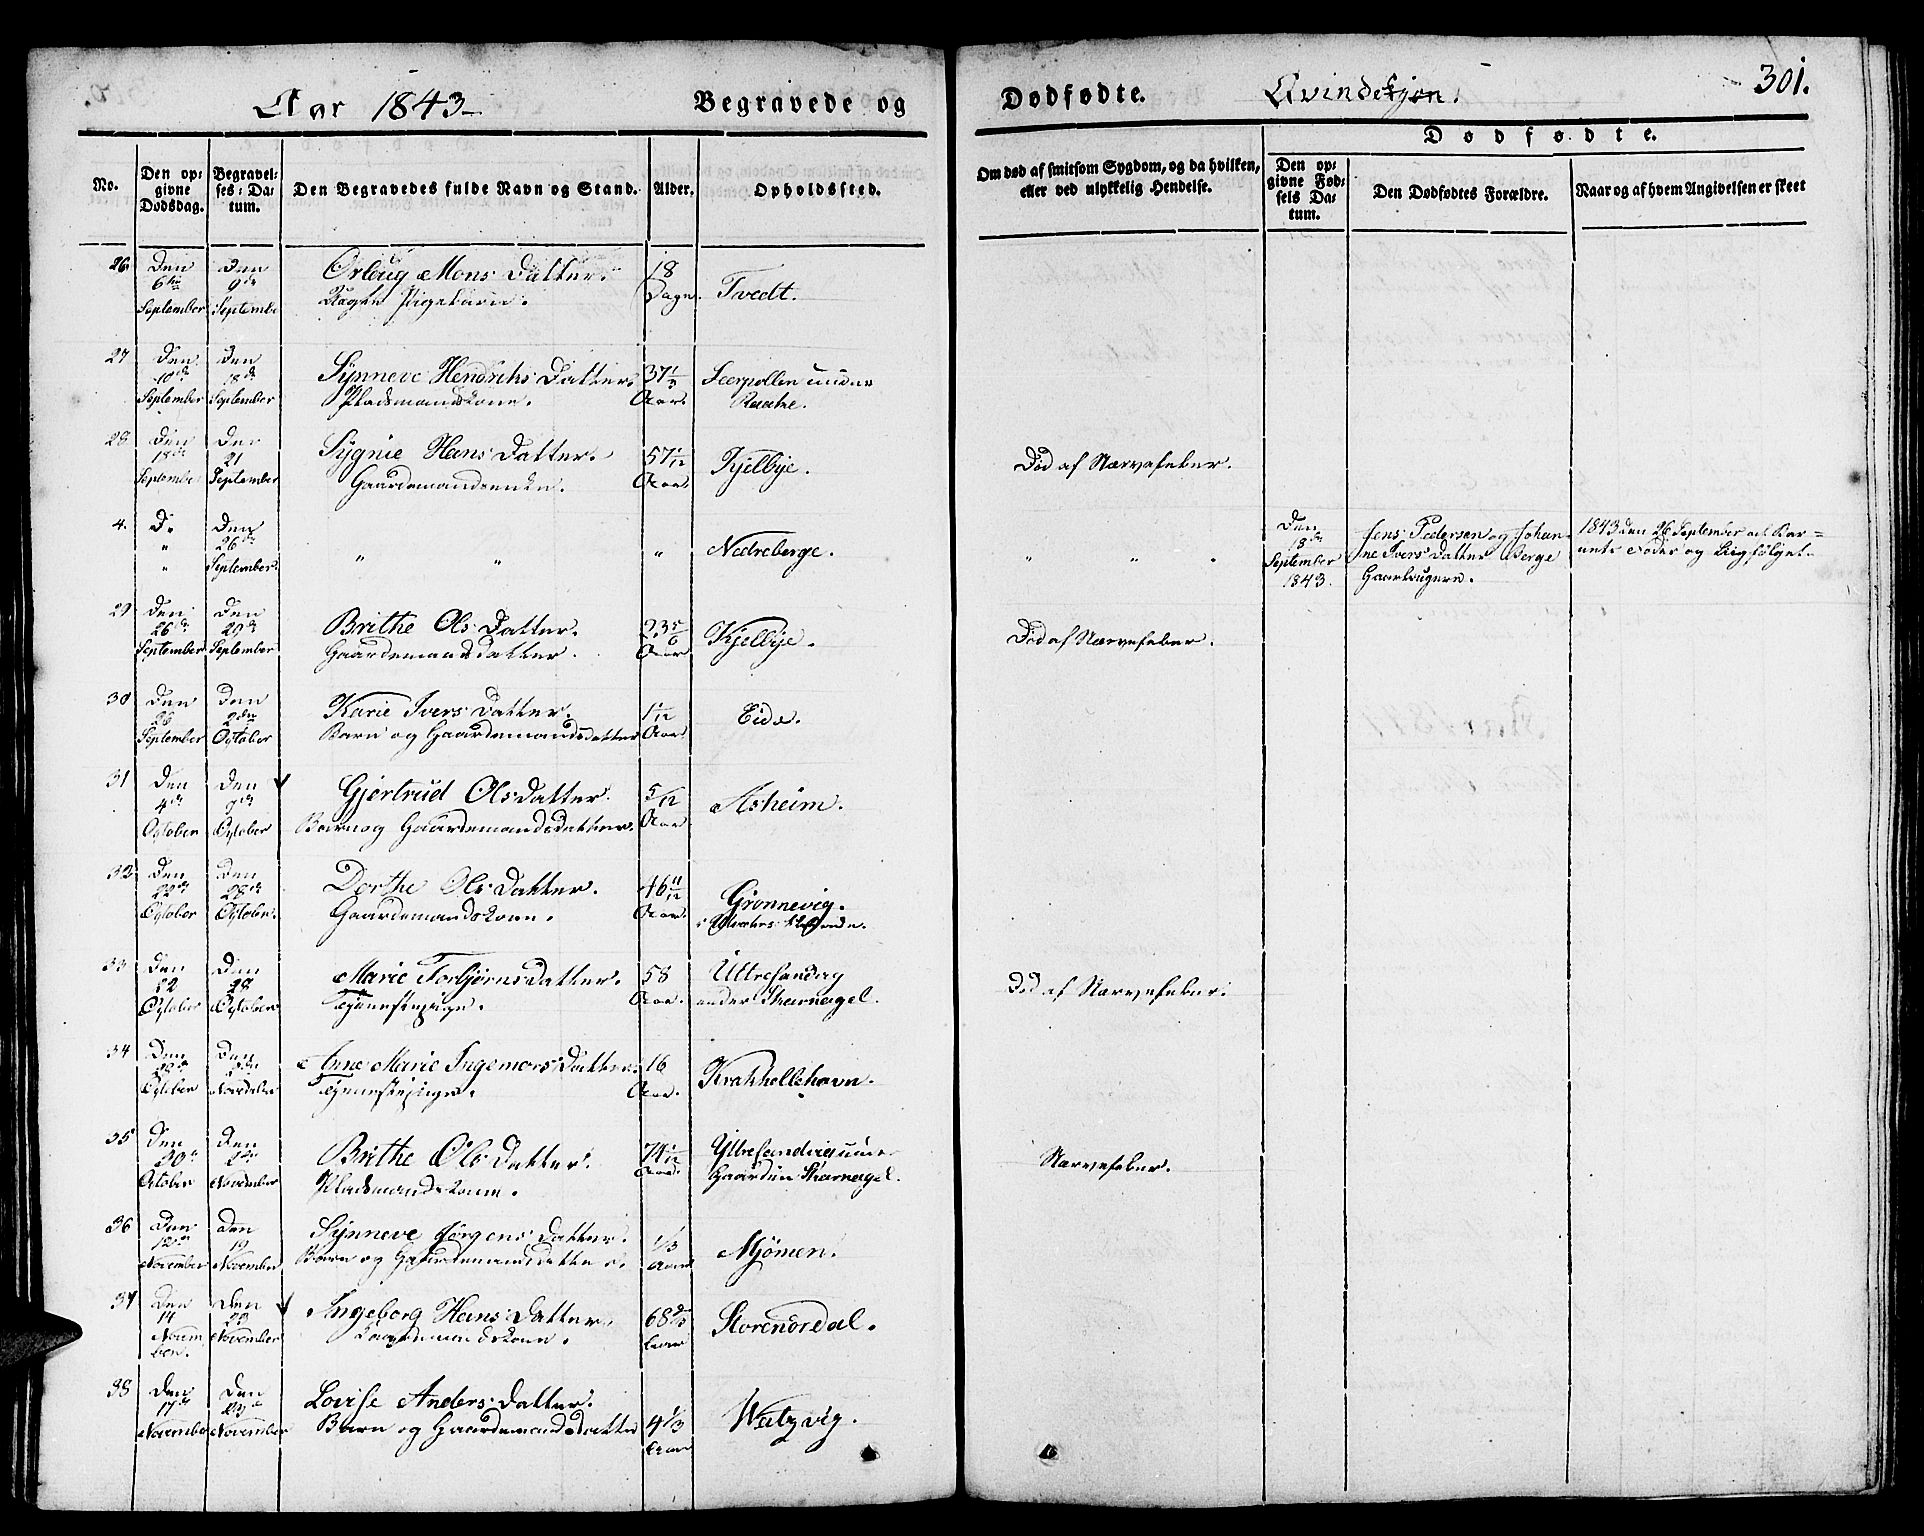 Aar 1843
Begravede og
Dødfødte.
Qvindekjøn.
301.
No.
Den opgivne Dødsdag.
Begravelses-Datum.
Den Begravedes fulde Navn og Stand.
Alder.
Opholdssted.
Om død af smitsom Sygdom, og da hvilken,
eller ved ulykkelig Hendelse.
Dødfødte.
Den opgivne Fødsels Datum.
Den Dødfødtes Forældre.
Naar og af hvem Angivelsen er skeet
26. Den Den Mons Datter. 18
6te 9de Tvedt.
September September Pigebarn. Dage.
27 Den Den Synneve Hendrichs Datter. 37 1/3
10de 18de under
September September Pladsmandskone. Aar.
28 Den Den Sygnie Hans Datter. 57 1/12
18de 21 Død af Nærvefeber.
September September Gaardemandsenke. Aar.
4. D. Den Den Jens Pedersen og Johan- 1843 den 26 September at Bar-
" 26de " " " Nedreberge. " " " 18de ne Ivers Datter Berge nets Fader og
" September. September Gaardbrugere.
1843.
29 Den Den Brithe Ols Datter. 23 5/6
26de 29de Kjelbye. Død af Nervefeber.
September September Gaardemandsdatter. Aar
30 Den Den Karie Ivers Datter. 1 1/12
26 2den Eide.
September October Barn og Gaardemandsdatter Aar.
31 Den Den Gjertrud Olsdatter. 5/12
4de 9de Asheim.
October October Barn og Gaardemandsdatter. Aar
32 Den Den Dorthe Ols Datter. 46 11/12
22de 28de Grønnevig.
October October. Gaardemandskone. Aar.
33 Den Den Marie Torbjørns Datter. 58 Ytresandvig
22 28 Død af Nervefeber.
October October Tjenestepige. Aar. under Skarnagel.
34 Den Den Anne Marie Ingemors Datter. 16
28de 2den Krakhellehavn.
October November Tjenestepige. Aar.
35 Den Den Brithe Ols Datter. 74 1/12 Ytresandvig under
30te Nervefeber.
October November Pladsmandskone. Aar. Gaarden Skarnagel.
36 Den Den Synneve Jørgens Datter. 1/3
12te 19 Mjömen.
November November Barn og Gaardemandsdatter. Aar
37 Den Den Ingeborg Hans Datter. 68 2/3
14 Storenordal.
Novem- November Gaardemandskone.
ber.
38 Den Den Lovise Anders Datter.
17de
November November Barn og Gaardemandsdatter 4 1/3
Aar